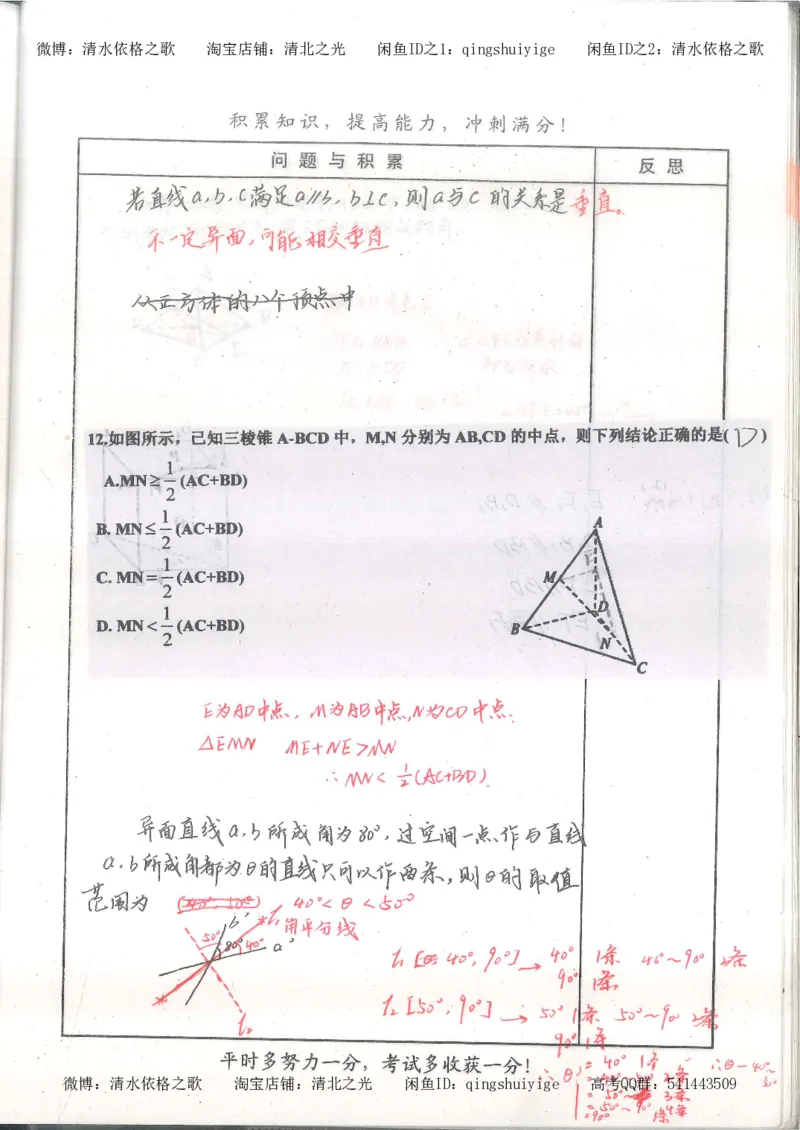 微博：清水依格之歌 淘宝店铺：清北之光 闲鱼ID之1：qingshuiyige 闲鱼ID之2：清水依格之歌
积累知识，提高能力，冲刺满分！
问题与积累 反思
若直线a,b,c满足a∥b,b⊥c,则a与c的关系是垂直。
不一定异面,可能相交垂直
从正方体的八个顶点中
12.如图所示，已知三棱锥 A-BCD 中，M,N 分别为 AB,CD 的中点，则下列结论正确的是(D)
A.MN≥1/2(AC+BD)
B. MN≤1/2(AC+BD)
C. MN=1/2(AC+BD)
D. MN<1/2(AC+BD)
A
E
M
D
B
N
C
E为AD中点, M为AB中点,N为CD中点.
△EMN ME+NE>MN
∴MN<1/2(AC+BD)
异面直线a,b所成角为80°,过空间一点作与直线
a,b所成角都为θ的直线只可以作两条,则θ的取值
范围为 40°<θ<50°
b' l₁
角平分线
50° 80° 40° a'
l₂
l₁ [θ: 40°,90°] → 40° 1条 40~90° 2条
90° 1条
l₂ [50°,90°] → 50° 1条 50°~90° 2条
90° 1条
平时多努力一分，考试多收获一分！
∴θ = 40° 1条
微博：清水依格之歌 淘宝店铺：清北之光 闲鱼ID：qingshuiyige 高考QQ群：541443509
= 50° 3条
= 50~90° 4条
=90° 1条